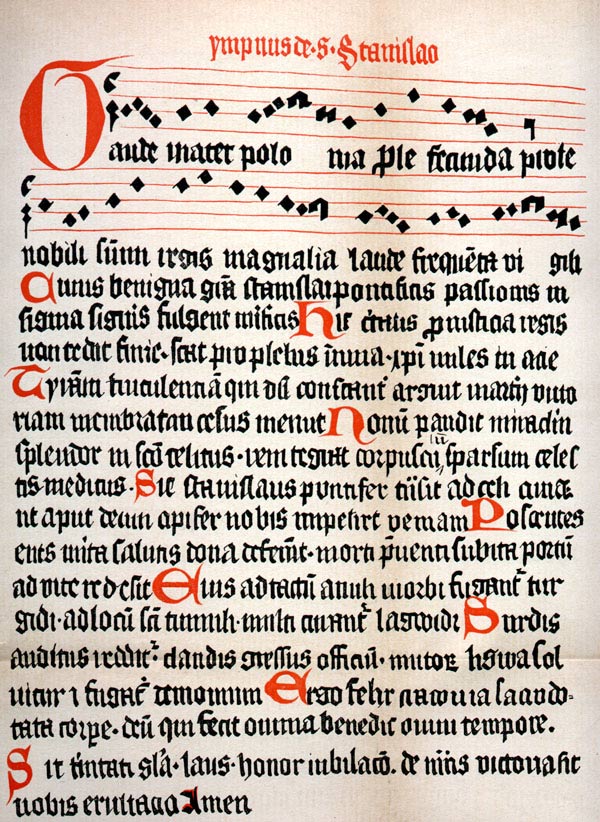 ympnus de · s · Stanislao
Gaude mater polo nia ple fecunda prole
nobili sūmi regis magnalia laude frequēta vi gili
Cuius benigna grā stanislai pontificis passionis in
signia signis fulgent mificis Hic ctans p iusticia regis
non cedit furie · stat pro plebis iniuria · xpi miles in acie
Tyrāni truculenciā qui dū constant arguit martyrii victo
riam membratim cesus meruit Nonū pandit miraclm
splendor in scō celitus · corpusculū sparsum celes
tis medicus · Sic stanislaus pontifex trāsit ad celi
ut aput deum opifex nobis impetret veniam Poscentes
eius mita salutis dona · morti pūenti subita portū
ad vite Eius ad tactū anuli morbi fugant tur
gidi · ad locū scī tumuli · multi curant langwidi Surdis
auditus reddit · claudis gressus officiū · mutor lingwa sol
uitur i fugat demonium Ergo felix cracouia sacro do-
tata corpe · deū qui fecit omnia benedic omni tempore ·
Sit tinitati glā · laus · honor iubilacō · de victoria sit
nobis exultacio Amen